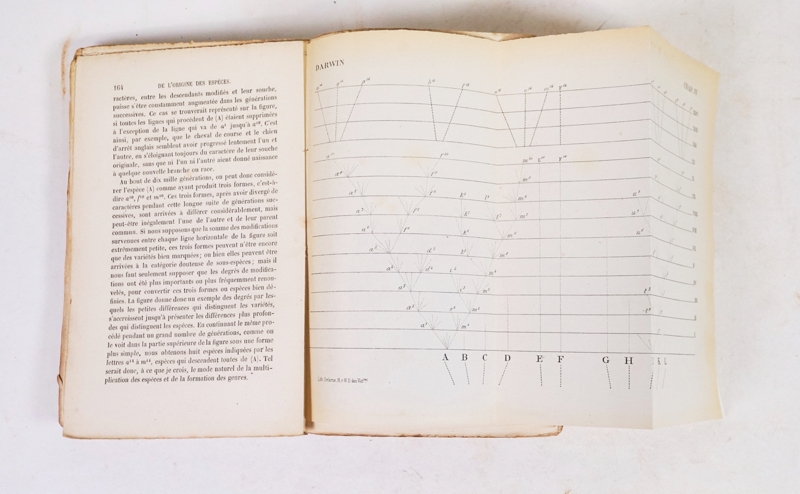 164 DE L'ORIGINE DES ESPÈCES.
ractères, entre les descendants modifiés et leur souche,
puisse s'être constamment augmentée dans les générations
successives. Ce cas se trouverait représenté sur la figure,
si toutes les lignes qui procèdent de (A) étaient supprimées
à l'exception de la ligne qui va de a¹ jusqu'à a¹⁰. C'est
ainsi, par exemple, que le cheval de course et le chien
d'arrêt anglais semblent avoir progressé lentement l'un et
l'autre, en s'éloignant toujours du caractère de leur souche
originale, sans que ni l'un ni l'autre aient donné naissance
à quelque nouvelle branche ou race.
Au bout de dix mille générations, on peut donc considé-
rer l'espèce (A) comme ayant produit trois formes, c'est-à-
dire a¹⁰, f¹⁰ et m¹⁰. Ces trois formes, après avoir divergé de
caractères pendant cette longue suite de générations suc-
cessives, sont arrivées à différer considérablement, mais
peut-être inégalement l'une de l'autre et de leur parent
commun. Si nous supposons que la somme des modifications
survenues entre chaque ligne horizontale de la figure soit
extrêmement petite, ces trois formes peuvent n'être encore
que des variétés bien marquées; ou bien elles peuvent être
arrivées à la catégorie douteuse de sous-espèces; mais il
nous faut seulement supposer que les degrés de modifica-
tions ont été plus importants ou plus fréquemment renou-
velés, pour convertir ces trois formes en espèces bien dé-
finies. La figure donne donc un exemple des degrés par les-
quels les petites différences qui distinguent les variétés,
s'accroissent jusqu'à présenter les différences plus profon-
des qui distinguent les espèces. En continuant le même pro-
cédé pendant un grand nombre de générations, comme on
le voit dans la partie supérieure de la figure sous une forme
plus simple, nous obtenons huit espèces indiquées par les
lettres a¹⁴ à m¹⁴, espèces qui descendent toutes de (A). Tel
serait donc, à ce que je crois, le mode naturel de la multi-
plication des espèces et de la formation des genres.
DARWIN
A B C D E F G H I K L